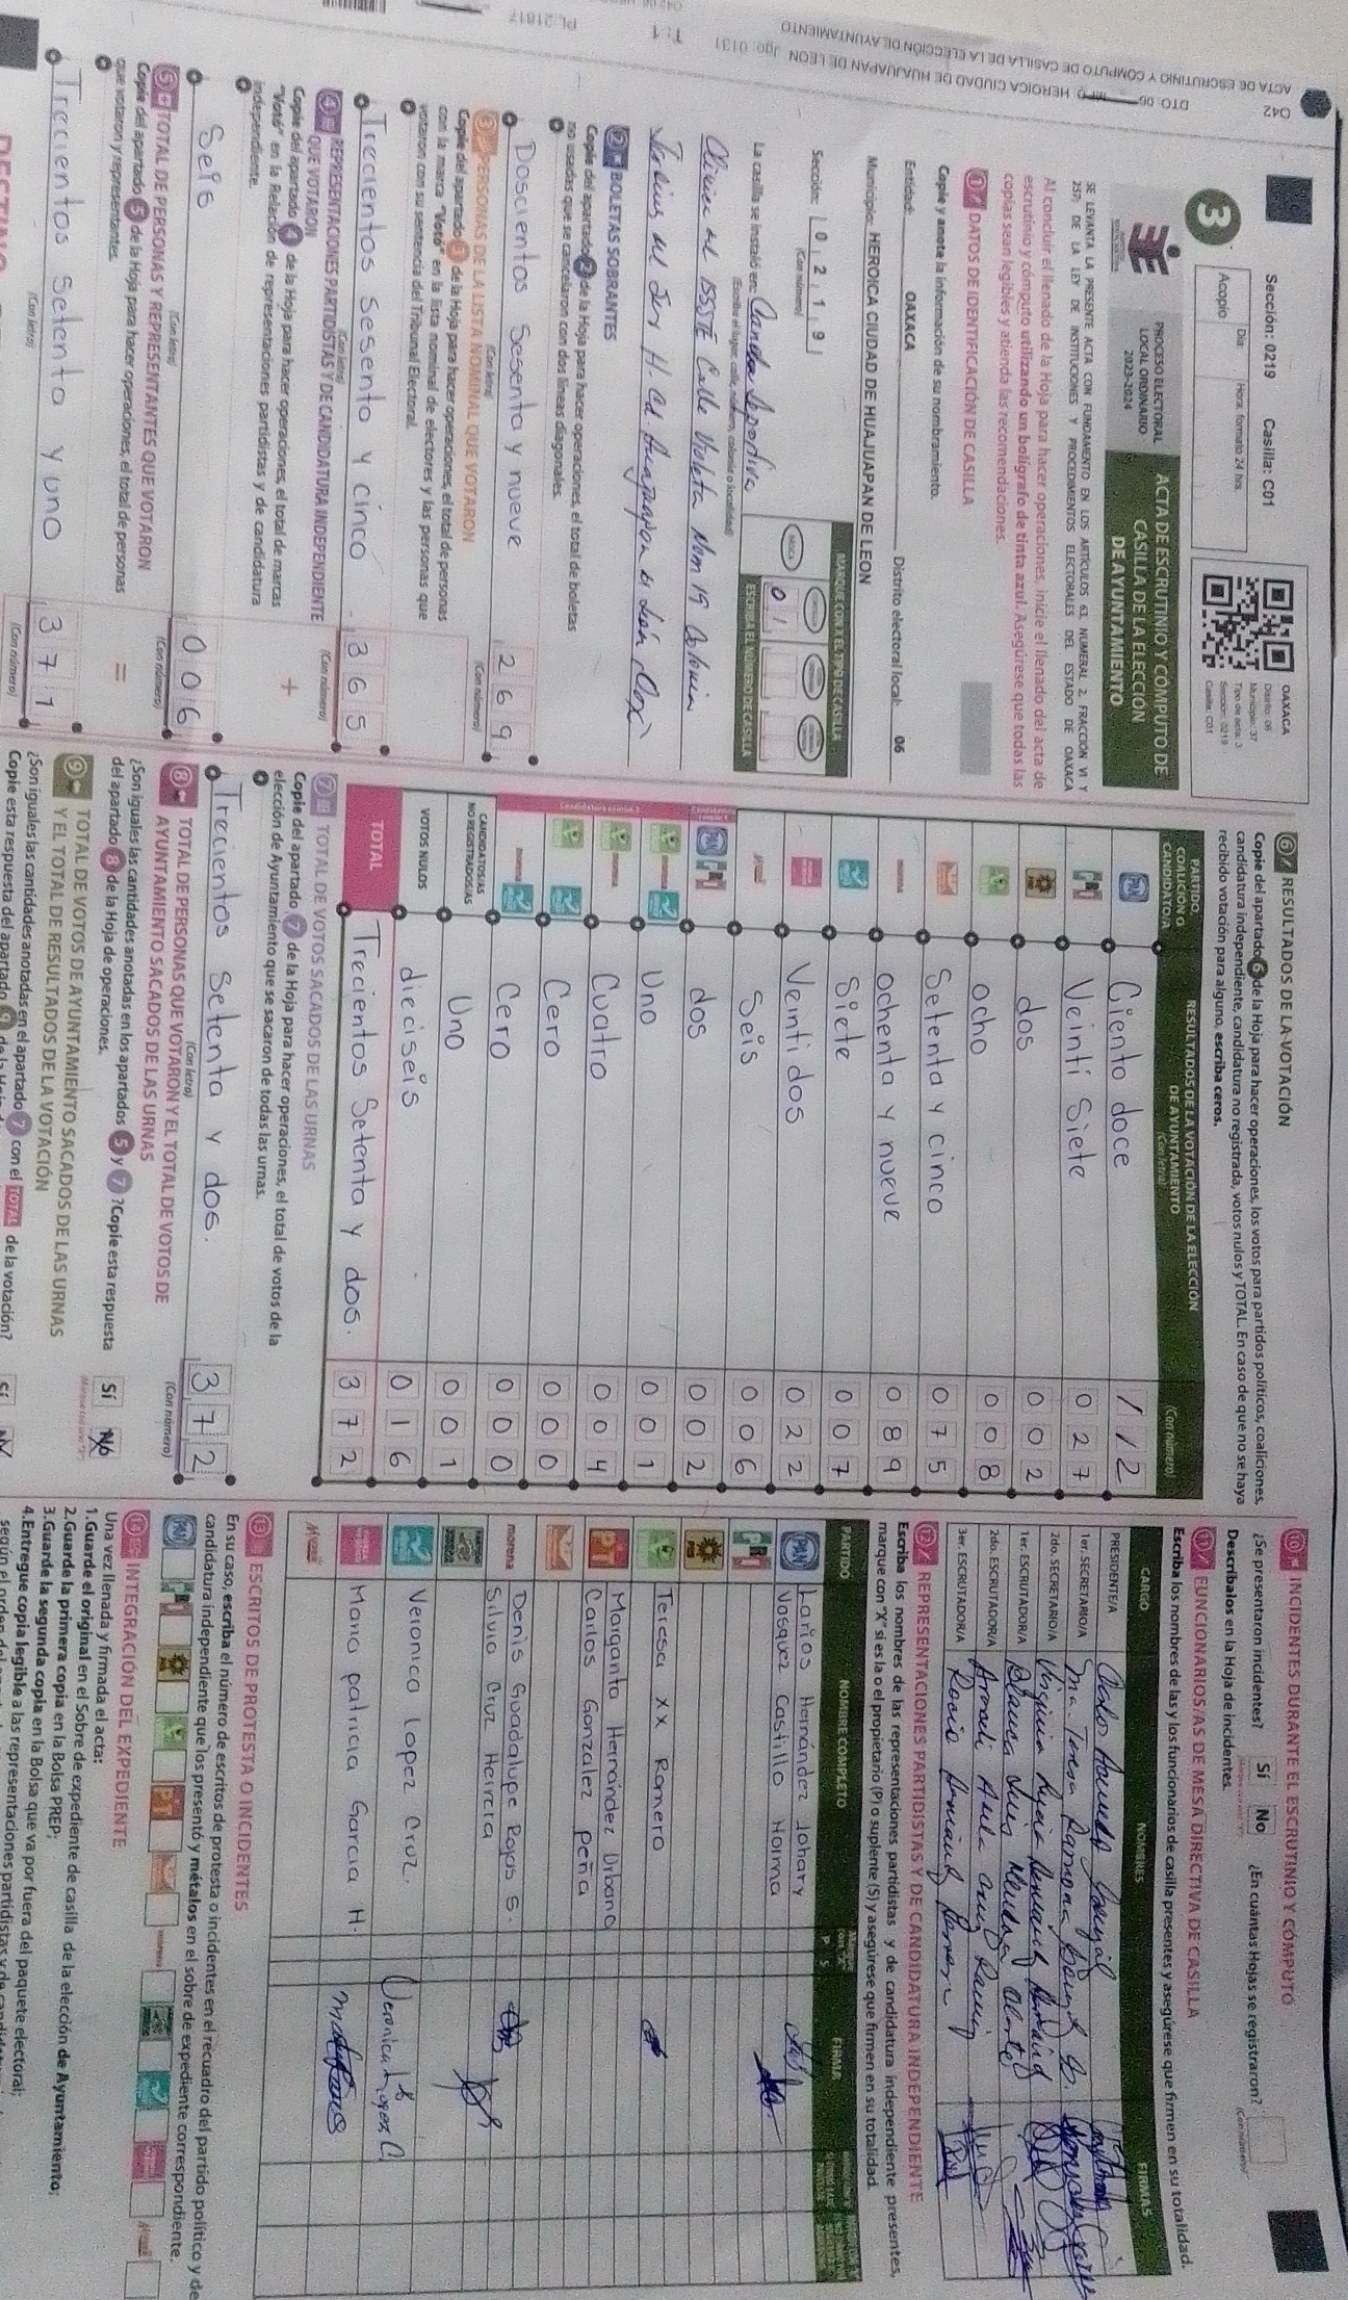 Sección: 0219 Casilla: C01
Día: Hora: formato 24 hrs.
Acopio
OAXACA
Distrito: 06
Municipio: 37
Tipo de acta: 3
Sección: 0219
Casilla: C01
3
PROCESO ELECTORAL
LOCAL ORDINARIO
2023-2024
ACTA DE ESCRUTINIO Y CÓMPUTO DE
CASILLA DE LA ELECCIÓN
DE AYUNTAMIENTO
SE LEVANTA LA PRESENTE ACTA CON FUNDAMENTO EN LOS ARTÍCULOS 63, NUMERAL 2, FRACCIÓN VI Y
257; DE LA LEY DE INSTITUCIONES Y PROCEDIMIENTOS ELECTORALES DEL ESTADO DE OAXACA
Al concluir el llenado de la Hoja para hacer operaciones, inicie el llenado del acta de
escrutinio y cómputo utilizando un bolígrafo de tinta azul. Asegúrese que todas las
copias sean legibles y atienda las recomendaciones.
1 DATOS DE IDENTIFICACIÓN DE CASILLA
Copie y anote la información de su nombramiento.
Entidad: OAXACA Distrito electoral local: 06
Municipio: HEROICA CIUDAD DE HUAJUAPAN DE LEON
Sección: 0 2 1 9
(Con número)
MARQUE CON X EL TIPO DE CASILLA
0 1
ESCRIBA EL NÚMERO DE CASILLA
La casilla se instaló en: Cancha Deportiva
(Escriba el lugar, calle, número, colonia o localidad)
Clínica del ISSSTE Calle Violeta Num 19 Colonia
Jardines del Sur H. Cd. Huajuapan de León, Oax
2 BOLETAS SOBRANTES
Copie del apartado 2 de la Hoja para hacer operaciones, el total de boletas
no usadas que se cancelaron con dos líneas diagonales.
Doscientos Sesenta y nueve 2 6 9
(Con letra) (Con número)
3 PERSONAS DE LA LISTA NOMINAL QUE VOTARON
Copie del apartado 3 de la Hoja para hacer operaciones, el total de personas
con la marca "Votó" en la lista nominal de electores y las personas que
votaron con su sentencia del Tribunal Electoral.
Trecientos Sesenta y cinco 3 6 5
(Con letra) (Con número)
4 REPRESENTACIONES PARTIDISTAS Y DE CANDIDATURA INDEPENDIENTE
QUE VOTARON
Copie del apartado 4 de la Hoja para hacer operaciones, el total de marcas
"Votó" en la Relación de representaciones partidistas y de candidatura
independiente.
+
Seis 0 0 6
(Con letra) (Con número)
5 TOTAL DE PERSONAS Y REPRESENTANTES QUE VOTARON
Copie del apartado 5 de la Hoja para hacer operaciones, el total de personas
que votaron y representantes.
=
Trecientos Setenta y uno 3 7 1
(Con letra) (Con número)
6 RESULTADOS DE LA VOTACIÓN
Copie del apartado 6 de la Hoja para hacer operaciones, los votos para partidos políticos, coaliciones,
candidatura independiente, candidatura no registrada, votos nulos y TOTAL. En caso de que no se haya
recibido votación para alguno, escriba ceros.
PARTIDO,
COALICIÓN O
CANDIDATO/A
RESULTADOS DE LA VOTACIÓN DE LA ELECCIÓN
DE AYUNTAMIENTO
(Con letra) (Con número)
PAN Ciento doce 1 1 2
PRI Veinti Siete 0 2 7
PRD dos 0 0 2
ocho 0 0 8
Setenta y cinco 0 7 5
morena ochenta y nueve 0 8 9
Siete 0 0 7
Veinti dos 0 2 2
Seis 0 0 6
PAN PRI dos 0 0 2
Uno 0 0 1
Cuatro 0 0 4
Cero 0 0 0
morena Cero 0 0 0
CANDIDATOS/AS
NO REGISTRADOS/AS Uno 0 0 1
VOTOS NULOS dieciseis 0 1 6
TOTAL Trecientos Setenta y dos. 3 7 2
7 TOTAL DE VOTOS SACADOS DE LAS URNAS
Copie del apartado 7 de la Hoja para hacer operaciones, el total de votos de la
elección de Ayuntamiento que se sacaron de todas las urnas.
Trecientos Setenta y dos. 3 7 2
(Con letra) (Con número)
8 TOTAL DE PERSONAS QUE VOTARON Y EL TOTAL DE VOTOS DE
AYUNTAMIENTO SACADOS DE LAS URNAS
¿Son iguales las cantidades anotadas en los apartados 5 y 7 ? Copie esta respuesta
del apartado 8 de la Hoja de operaciones.
Sí No
9 TOTAL DE VOTOS DE AYUNTAMIENTO SACADOS DE LAS URNAS
Y EL TOTAL DE RESULTADOS DE LA VOTACIÓN
¿Son iguales las cantidades anotadas en el apartado 7 con el TOTAL de la votación?
Copie esta respuesta del apartado 9
10 INCIDENTES DURANTE EL ESCRUTINIO Y CÓMPUTO
¿Se presentaron incidentes? Sí No ¿En cuántas Hojas se registraron?
(Con número)
Descríbalos en la Hoja de incidentes.
11 FUNCIONARIOS/AS DE MESA DIRECTIVA DE CASILLA
Escriba los nombres de las y los funcionarios de casilla presentes y asegúrese que firmen en su totalidad.
CARGO NOMBRES FIRMAS
PRESIDENTE/A
1er. SECRETARIO/A Ma. Teresa Ramona
2do. SECRETARIO/A Virginia
1er. ESCRUTADOR/A Blanca
2do. ESCRUTADOR/A Araceli
3er. ESCRUTADOR/A Rocio
12 REPRESENTACIONES PARTIDISTAS Y DE CANDIDATURA INDEPENDIENTE
Escriba los nombres de las representaciones partidistas y de candidatura independiente presentes,
marque con "X" si es la o el propietario (P) o suplente (S) y asegúrese que firmen en su totalidad.
PARTIDO NOMBRE COMPLETO P S FIRMA
PAN Larios Hernández Johary
Vasquez Castillo Norma
PRI
PRD
Teresa XX Romero
PT Morganta Hernández Urbano
Carlos Gonzalez Peña
morena Denis Guadalupe Rojas S.
Silvia Cruz Heircia
Veronica Lopez Cruz.
Maria patricia Garcia H.
13 ESCRITOS DE PROTESTA O INCIDENTES
En su caso, escriba el número de escritos de protesta o incidentes en el recuadro del partido político y de
candidatura independiente que los presentó y métalos en el sobre de expediente correspondiente.
PAN PRI PRD PT
14 INTEGRACIÓN DEL EXPEDIENTE
Una vez llenada y firmada el acta:
1.Guarde el original en el Sobre de expediente de casilla de la elección de Ayuntamiento;
2.Guarde la primera copia en la Bolsa PREP;
3.Guarde la segunda copia en la Bolsa que va por fuera del paquete electoral;
4.Entregue copia legible a las representaciones partidistas y de
según el orden
042 DTO: 06
ACTA DE ESCRUTINIO Y CÓMPUTO DE CASILLA DE LA ELECCIÓN DE AYUNTAMIENTO
HEROICA CIUDAD DE HUAJUAPAN DE LEON Jgo: 0131 T: 1
PL: 21817